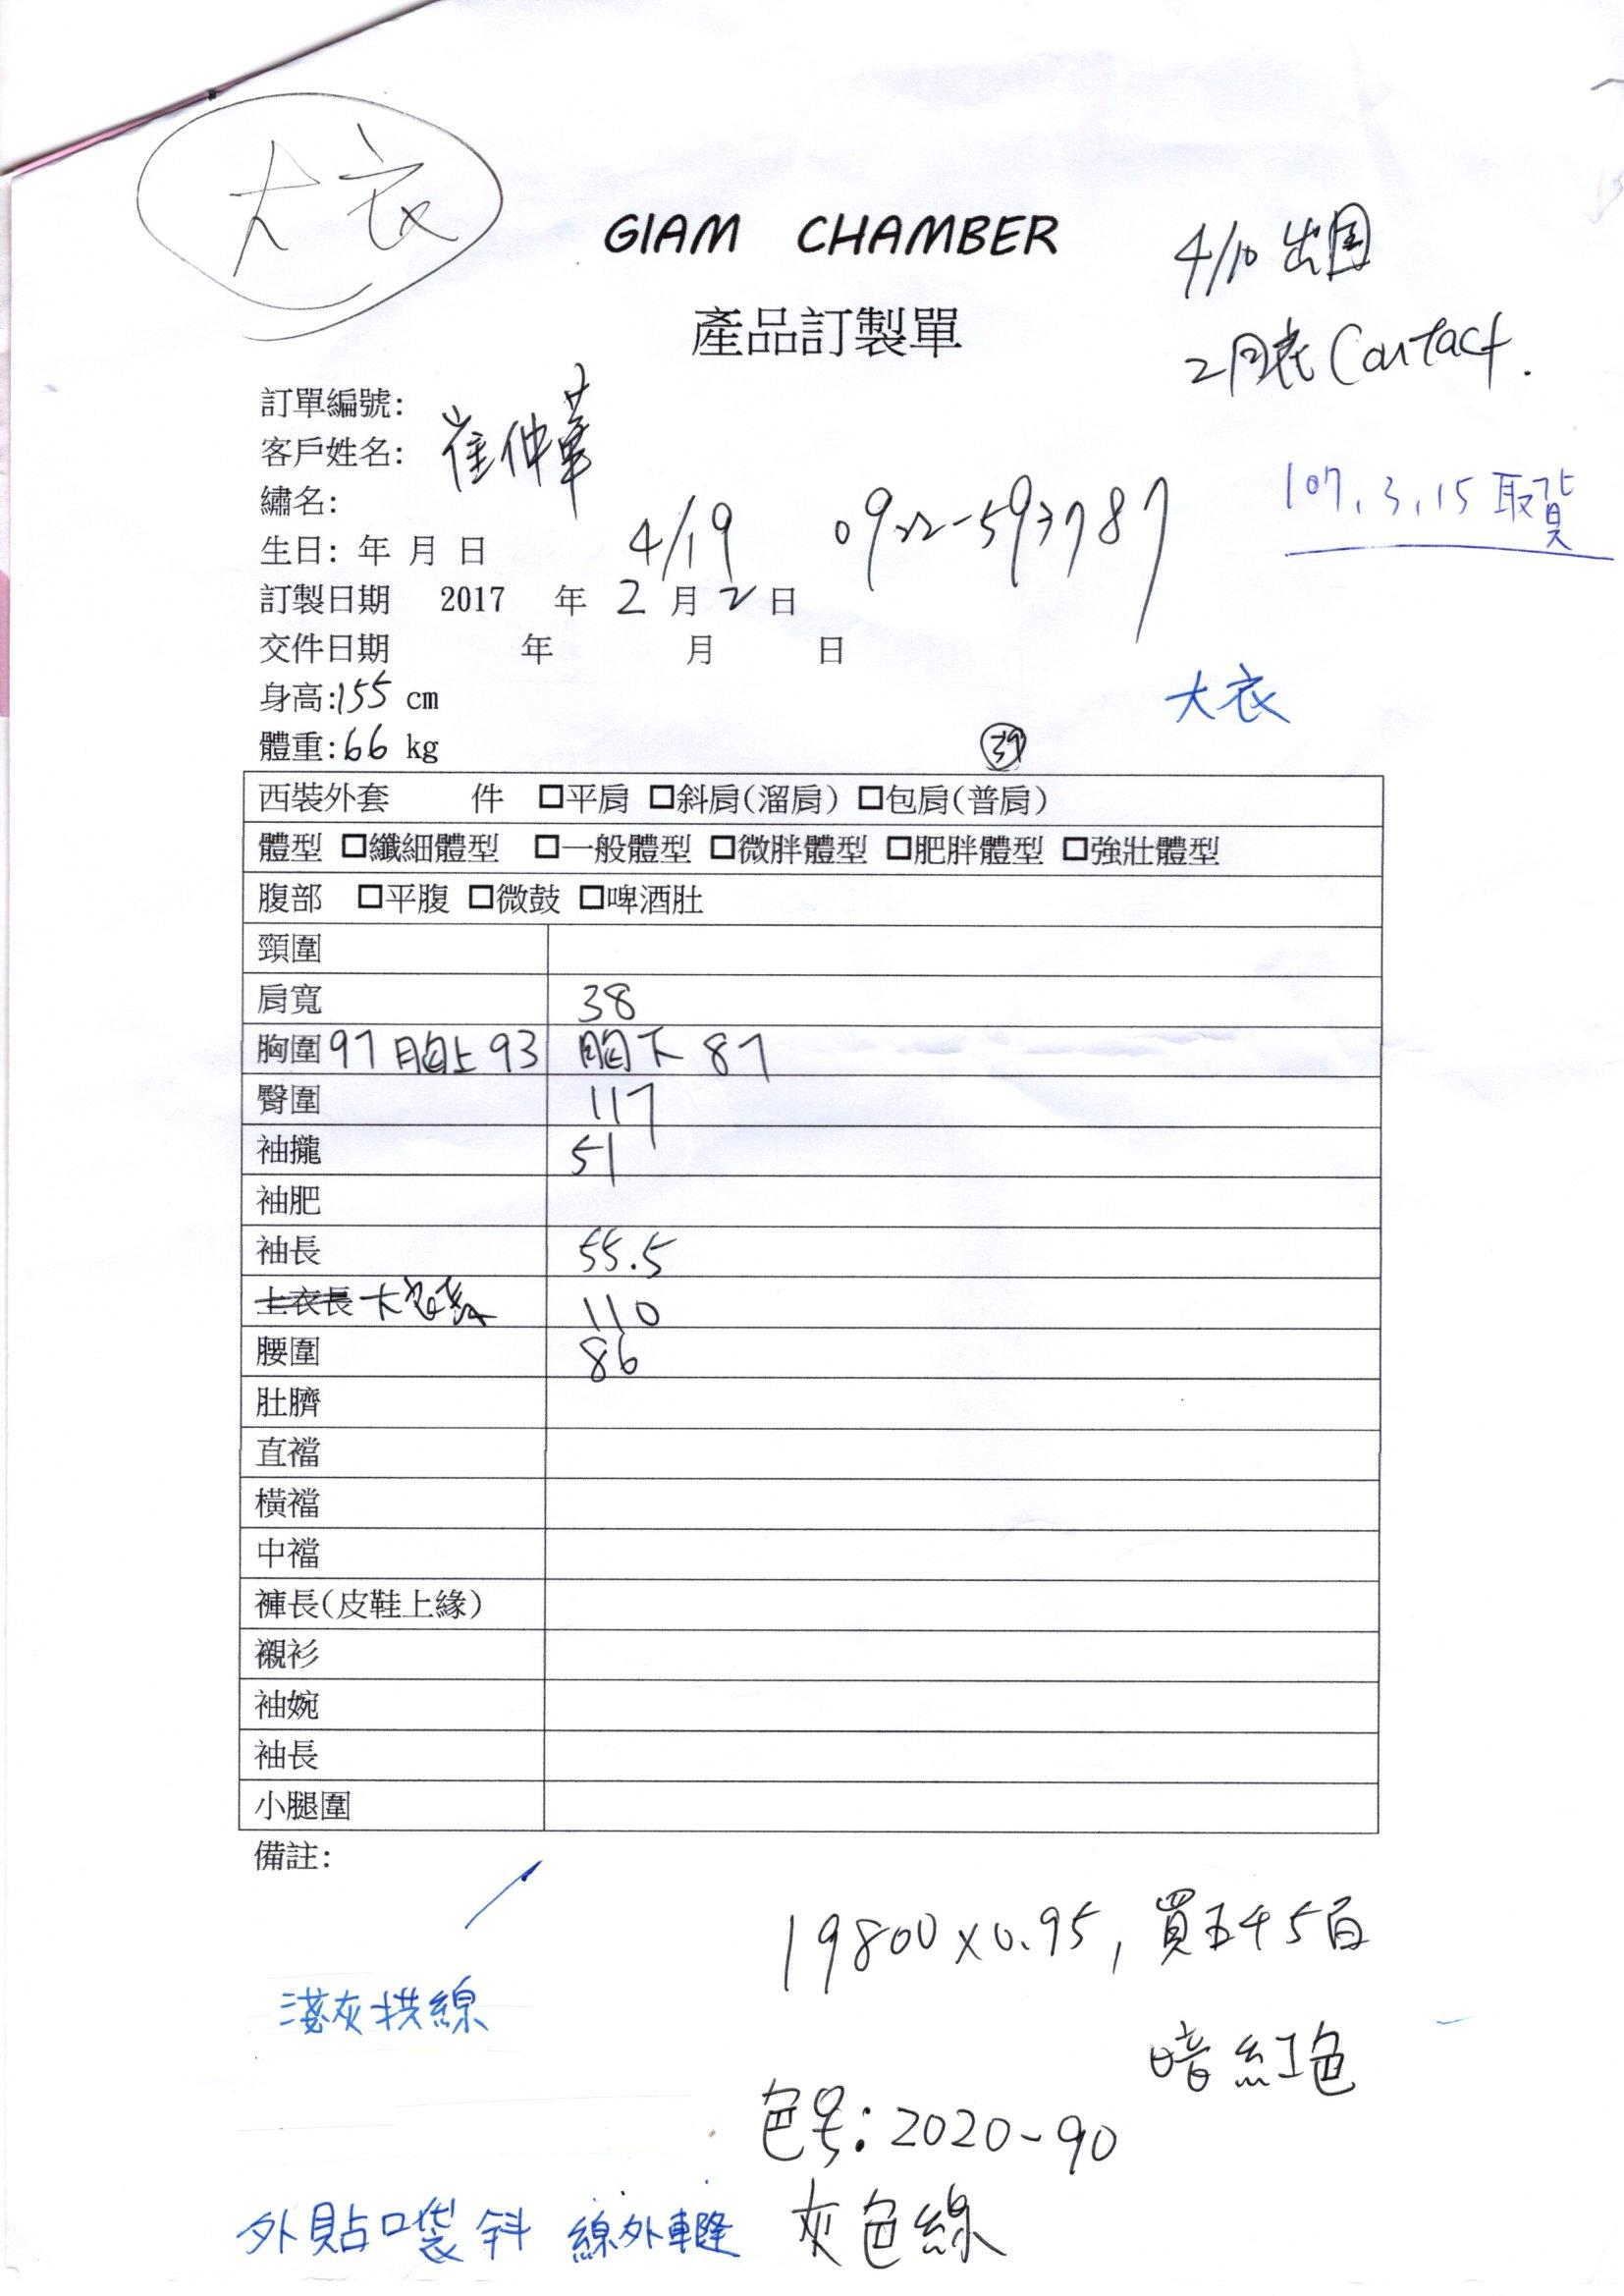 大衣
GIAM CHAMBER
4/10 出国
產品訂製單
2月底 Contact.
訂單編號:
客戶姓名: 崔仲華
107.3.15 取貨
繡名:
生日: 年 月 日 4/19 0922-593787
訂製日期 2017 年 2 月 2 日
交件日期 年 月 日
身高:155 cm
大衣
體重:66 kg
西裝外套 件 □平肩 □斜肩(溜肩) □包肩(普肩)
體型 □纖細體型 □一般體型 □微胖體型 □肥胖體型 □強壯體型
腹部 □平腹 □微鼓 □啤酒肚
頸圍
肩寬 38
胸圍 97 胸上 93 胸下 87
臀圍 117
袖攏 51
袖肥
袖長 55.5
上衣長 大衣長 110
腰圍 86
肚臍
直襠
橫襠
中襠
褲長(皮鞋上緣)
襯衫
袖婉
袖長
小腿圍
備註:
19800x0.95, 買五千5百
淺灰拱線
暗紅色
色号:2020-90
外貼口袋 斜 線外車縫 灰色線